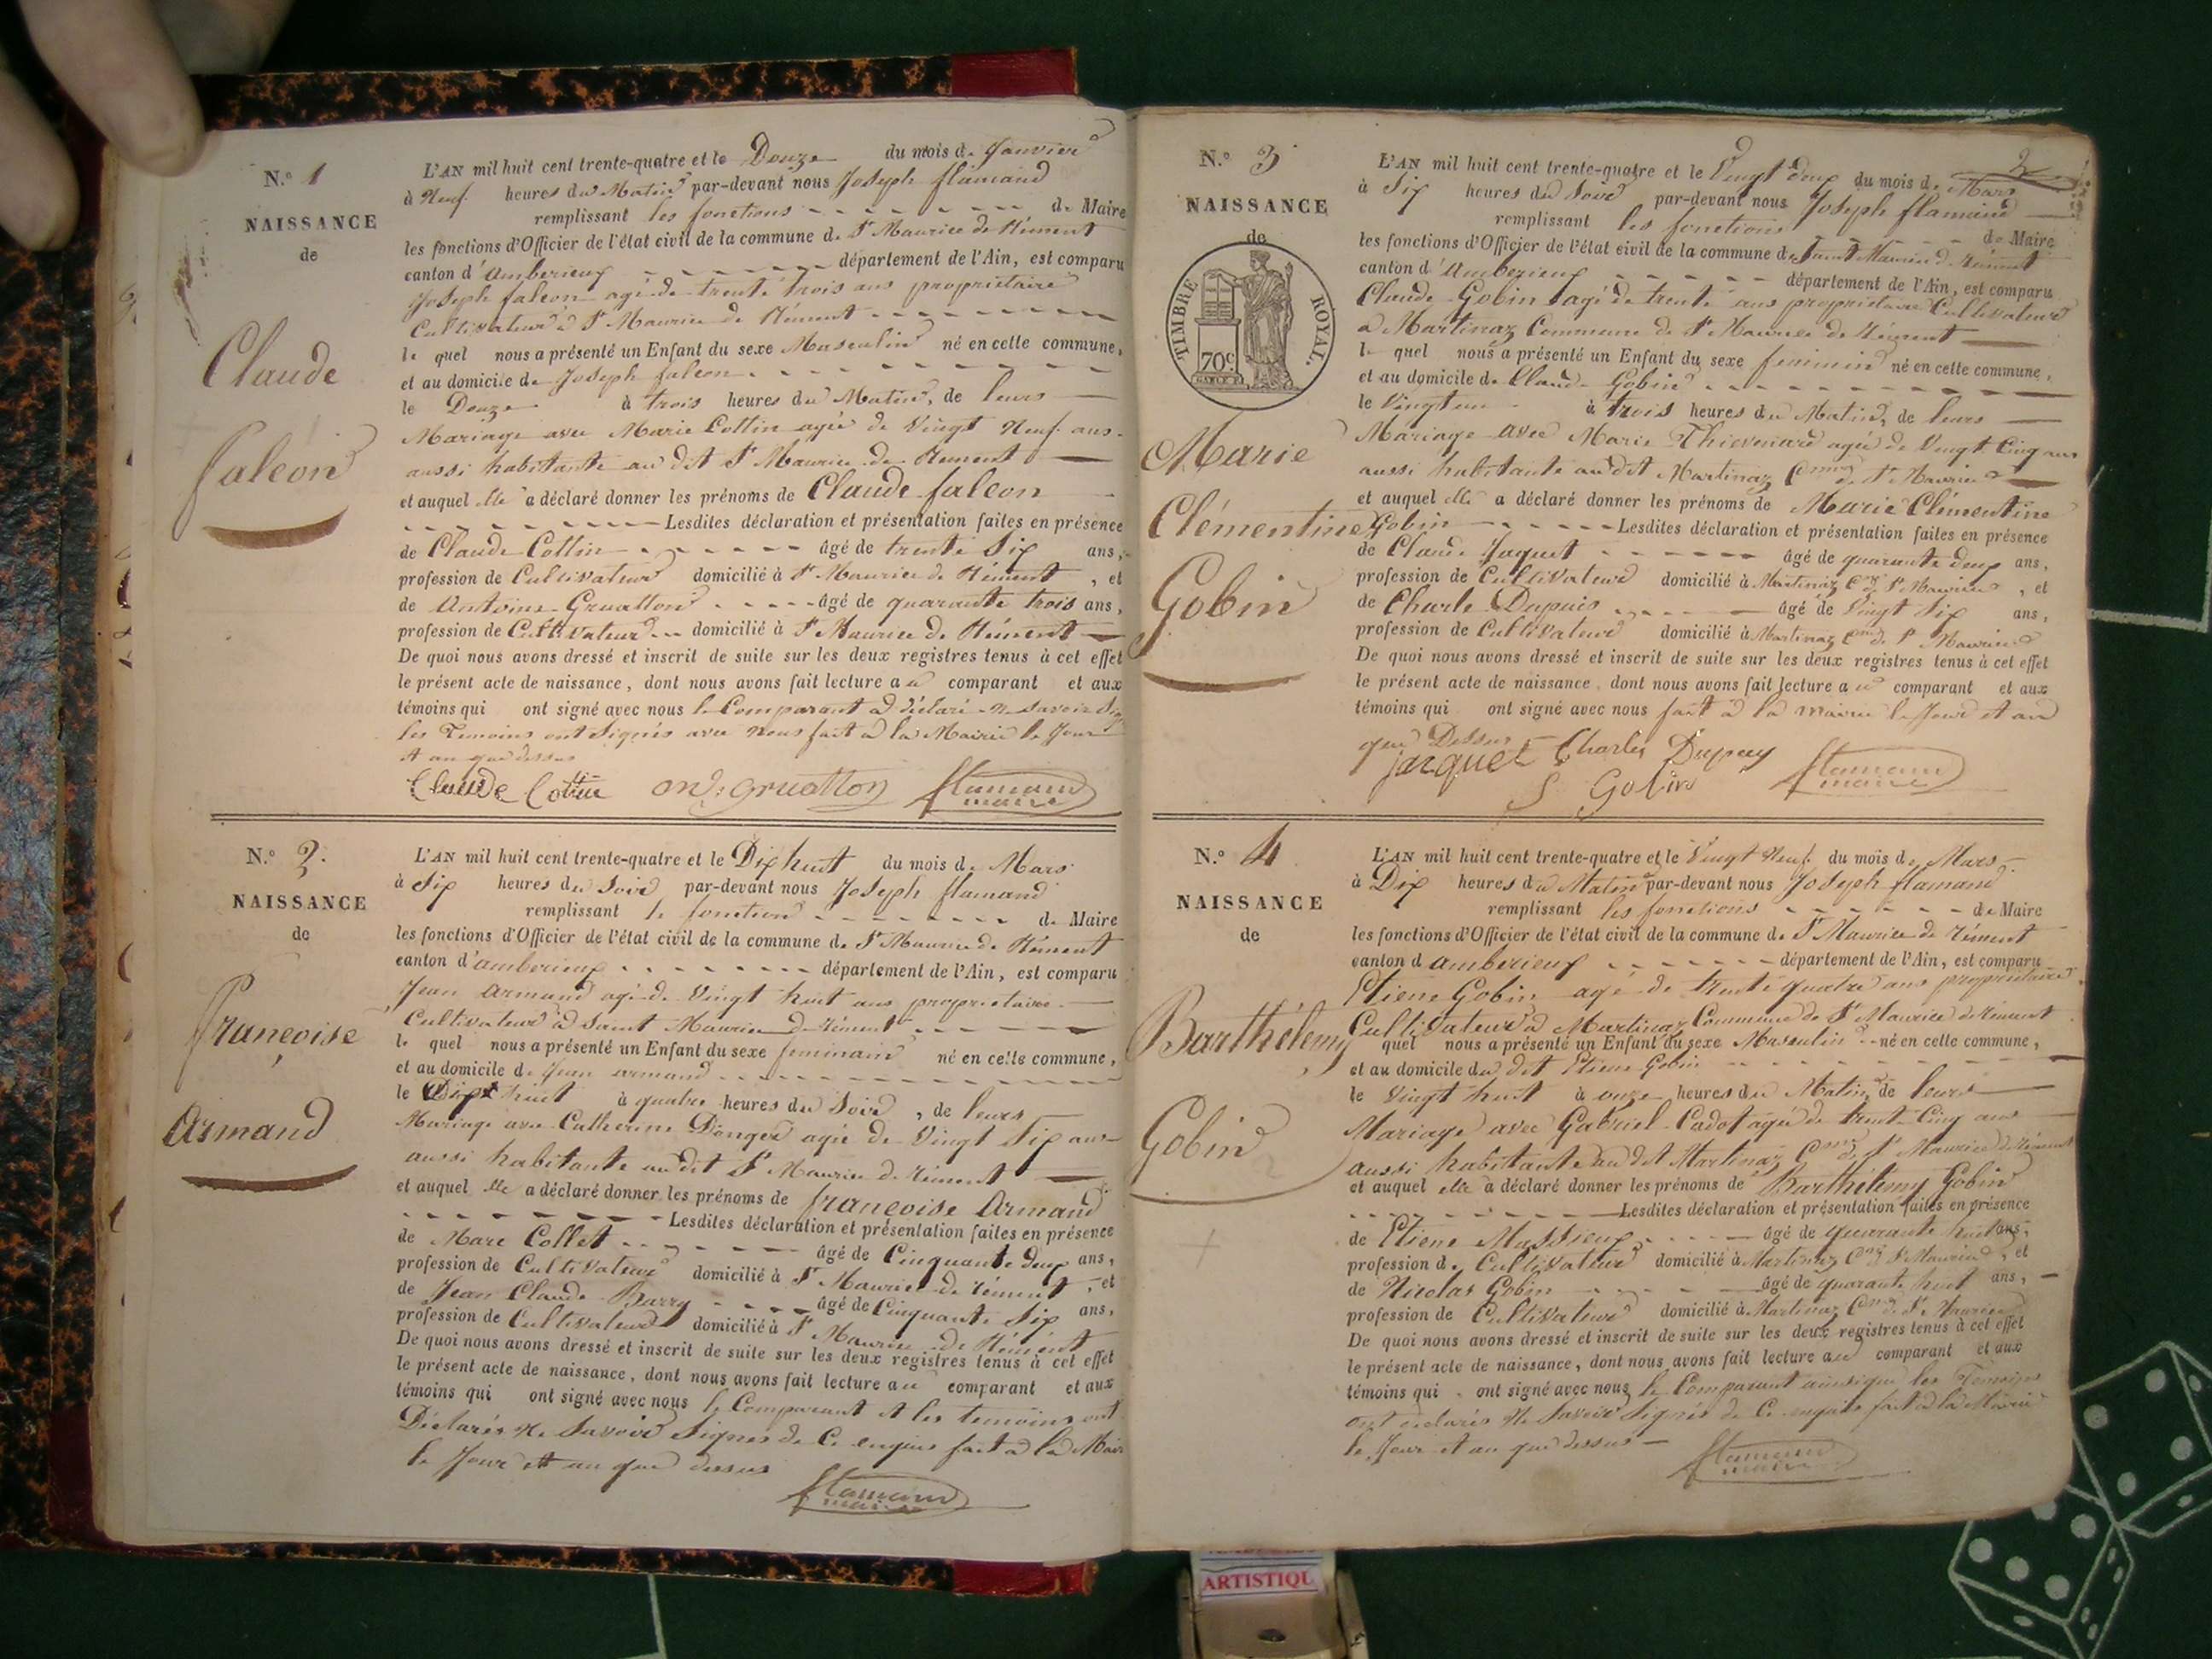 N.º 1
NAISSANCE
de
Claude
falcon
L'AN mil huit cent trente-quatre et le Douze du mois de Janvier
à Neuf heures du Matin par-devant nous Joseph flamand
remplissant les fonctions de Maire
les fonctions d'Officier de l'état civil de la commune de St Maurice de Rément
canton d'amberieux département de l'Ain, est comparu
Joseph falcon agé de trente trois ans propriétaire
Cultivateur à St Maurice de Rément
le quel nous a présenté un Enfant du sexe Masculin né en cette commune,
et au domicile de Joseph falcon
le Douze à trois heures du Matin, de leurs
Mariage avec Marie Cottin agée de Vingt Neuf ans
aussi habitante au dit St Maurice de Rement
et auquel elle a déclaré donner les prénoms de Claude falcon
Lesdites déclaration et présentation faites en présence
de Claude Cottin âgé de trente Six ans,
profession de Cultivateur domicilié à St Maurice de Rément, et
de Antoine Gruatton âgé de quarante trois ans,
profession de Cultivateur domicilié à St Maurice de Rément
De quoi nous avons dressé et inscrit de suite sur les deux registres tenus à cet effet
le présent acte de naissance, dont nous avons fait lecture au comparant et aux
témoins qui ont signé avec nous le Comparant a déclaré ne savoir
les Temoins ont Signés avec nous fait à la Mairie le Jour
et an que dessus
Claude Cottin and. gruatton flamand
maire
N.º 2.
NAISSANCE
de
françoise
Armand
L'AN mil huit cent trente-quatre et le Dix huit du mois de Mars
à Six heures du Soir par-devant nous Joseph flamand
remplissant le fonction de Maire
les fonctions d'Officier de l'état civil de la commune de St Maurice de Rément
canton d'amberieux département de l'Ain, est comparu
Jean Armand agé de Vingt huit ans propriétaire
Cultivateur à Saint Maurice de Rément
le quel nous a présenté un Enfant du sexe feminain né en cette commune,
et au domicile de Jean armand
le Dix huit à quatre heures du Soir, de leurs
Mariage avec Catherine agée de Vingt Six ans
aussi habitante au dit St Maurice de Rément
et auquel elle a déclaré donner les prénoms de françoise Armand
Lesdites déclaration et présentation faites en présence
de Marc Collet âgé de Cinquante deux ans,
profession de Cultivateur domicilié à St Maurice de Rément, et
de Jean Claude Barry âgé de Cinquante Six ans,
profession de Cultivateur domicilié à St Maurice de Rément
De quoi nous avons dressé et inscrit de suite sur les deux registres tenus à cet effet
le présent acte de naissance, dont nous avons fait lecture au comparant et aux
témoins qui ont signé avec nous le Comparant et les temoins ont
Déclarés Ne Savoir Signés de Ce enquis fait à la Mair
le Jour et an que dessus
flamand
maire
2
N.º 3
NAISSANCE
de
TIMBRE ROYAL.
70c
Marie
Clémentine
Gobin
L'AN mil huit cent trente-quatre et le Vingt deux du mois de Mars
à Six heures du Soir par-devant nous Joseph flamand
remplissant les fonctions de Maire
les fonctions d'Officier de l'état civil de la commune de Saint Maurice de Rément
canton d'Amberieux département de l'Ain, est comparu
Claude Gobin agé de trente ans propriétaire Cultivateur
a Martinaz Commune de St Maurice de Rément
le quel nous a présenté un Enfant du sexe feminin né en cette commune,
et au domicile de Claude Gobin
le Vingt un à trois heures du Matin, de leurs
Mariage avec Marie Thievenard agée de Vingt Cinq ans
aussi habitante au dit Martinaz Cmne de St Maurice
et auquel elle a déclaré donner les prénoms de Marie Clémentine
Gobin Lesdites déclaration et présentation faites en présence
de Claude Jaquet âgé de quarante deux ans,
profession de Cultivateur domicilié à Martinaz Cne St Maurice, et
de Charle Dupuis âgé de Vingt Six ans,
profession de Cultivateur domicilié à Martinaz Cne de St Maurice
De quoi nous avons dressé et inscrit de suite sur les deux registres tenus à cet effet
le présent acte de naissance, dont nous avons fait lecture au comparant et aux
témoins qui ont signé avec nous fait à la Mairie le Jour et an
que Dessus
jarquet Charles Dupuy flamand
maire
Gobin
N.º 4
NAISSANCE
de
Barthélemy
Gobin
L'AN mil huit cent trente-quatre et le Vingt Neuf du mois de Mars
à Dix heures du Matin par-devant nous Joseph flamand
remplissant les fonctions de Maire
les fonctions d'Officier de l'état civil de la commune de St Maurice de Rément
canton d'amberieux département de l'Ain, est comparu
Etiene Gobin agé de trente quatre ans propriétaire
Cultivateur a Martinaz Commune de St Maurice de Rément
quel nous a présenté un Enfant du sexe Masculin né en cette commune,
et au domicile du dit Etiene Gobin
le Vingt huit à onze heures du Matin, de leurs
Mariage avec Gabriel Cadot agée de trente Cinq ans
aussi habitante au dit Martinaz Cmne de St Maurice de Rément
et auquel elle a déclaré donner les prénoms de Barthélemy Gobin
Lesdites déclaration et présentation faites en présence
de Etiene Mussieux âgé de quarante huit ans,
profession de Cultivateur domicilié à Martinaz Cne St Maurice, et
de Nicolas Gobin âgé de quarante huit ans,
profession de Cultivateur domicilié à Martinaz Cne de St Maurice
De quoi nous avons dressé et inscrit de suite sur les deux registres tenus à cet effet
le présent acte de naissance, dont nous avons fait lecture au comparant et aux
témoins qui ont signé avec nous le Comparant ainsi que les Témoins
ont déclarés Ne Savoir Signés de Ce enquis fait à la Mairie
le Jour et an que dessus
flamand
maire
ARTISTIQU